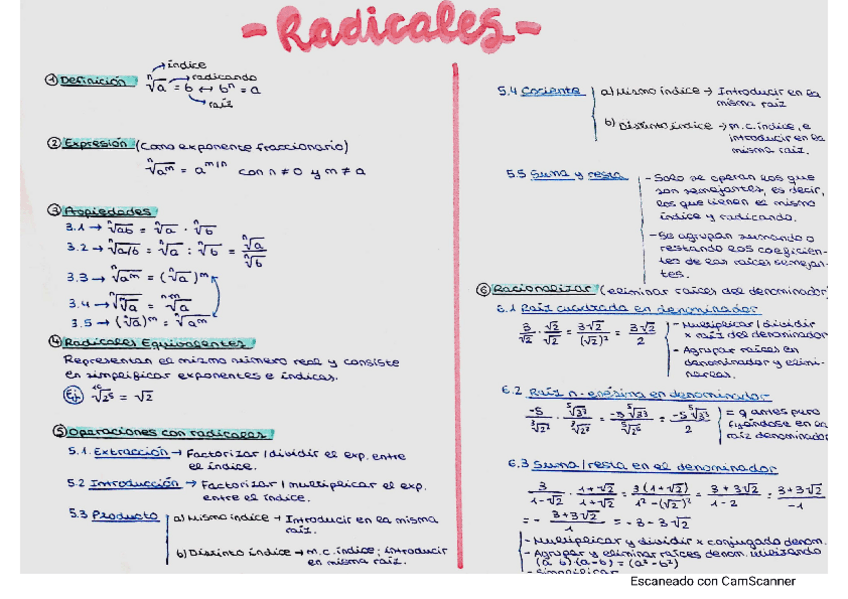 - Radicales -
① Definición
índice
ⁿ√a = b ↔ bⁿ = a
radicando
raíz
② Expresión (como exponente fraccionario)
ⁿ√aᵐ = a^(m/n) con n ≠ 0 y m ≠ a
③ Propiedades
3.1 → ⁿ√ab = ⁿ√a · ⁿ√b
3.2 → ⁿ√a/b = ⁿ√a : ⁿ√b = ⁿ√a / ⁿ√b
3.3 → ⁿ√aᵐ = (ⁿ√a)ᵐ
3.4 → ⁿ√ᵐ√a = ⁿᵐ√a
3.5 → (ⁿ√a)ᵐ = ⁿ√aᵐ
④ Radicales Equivalentes
Representan el mismo número real y consiste
en simplificar exponentes e índices.
Ej √2⁵ = √2
⑤ Operaciones con radicales
5.1. Extracción → Factorizar / dividir el exp. entre
el índice.
5.2 Introducción → Factorizar / multiplicar el exp.
entre el índice.
5.3 Producto
a) Mismo índice → Introducir en la misma
raíz.
b) Distinto índice → m.c.índice; introducir
en misma raíz.
5.4 Cociente
a) Mismo índice → Introducir en la
misma raíz
b) Distinto índice → m.c.índice, e
introducir en la
misma raíz.
5.5 Suma y resta
- Solo se operan los que
son semejantes, es decir,
los que tienen el mismo
índice y radicando.
- Se agrupan sumando o
restando los coeficien-
tes de las raíces semejan-
tes.
⑥ Racionalizar (eliminar raíces del denominador)
6.1 Raíz cuadrada en denominador
3/√2 · √2/√2 = 3√2/(√2)² = 3√2/2
- Multiplicar / dividir
x raíz del denominador
- Agrupar raíces en
denominador y elimi-
narlas.
6.2 Raíz n-enésima en denominador
= q antes pero
fijándose en la
raíz denominador
6.3 Suma / resta en el denominador
3/(1-√2) · (1+√2)/(1+√2) = 3(1+√2)/(1²-(√2)²) = (3+3√2)/(1-2) = (3+3√2)/-1
= - (3+3√2)/1 = -3-3√2
- Multiplicar y dividir x conjugado denom.
- Agrupar y eliminar raíces denom. utilizando
(a b)·(a-b) = (a²-b²)
- Simplificar
Escaneado con CamScanner